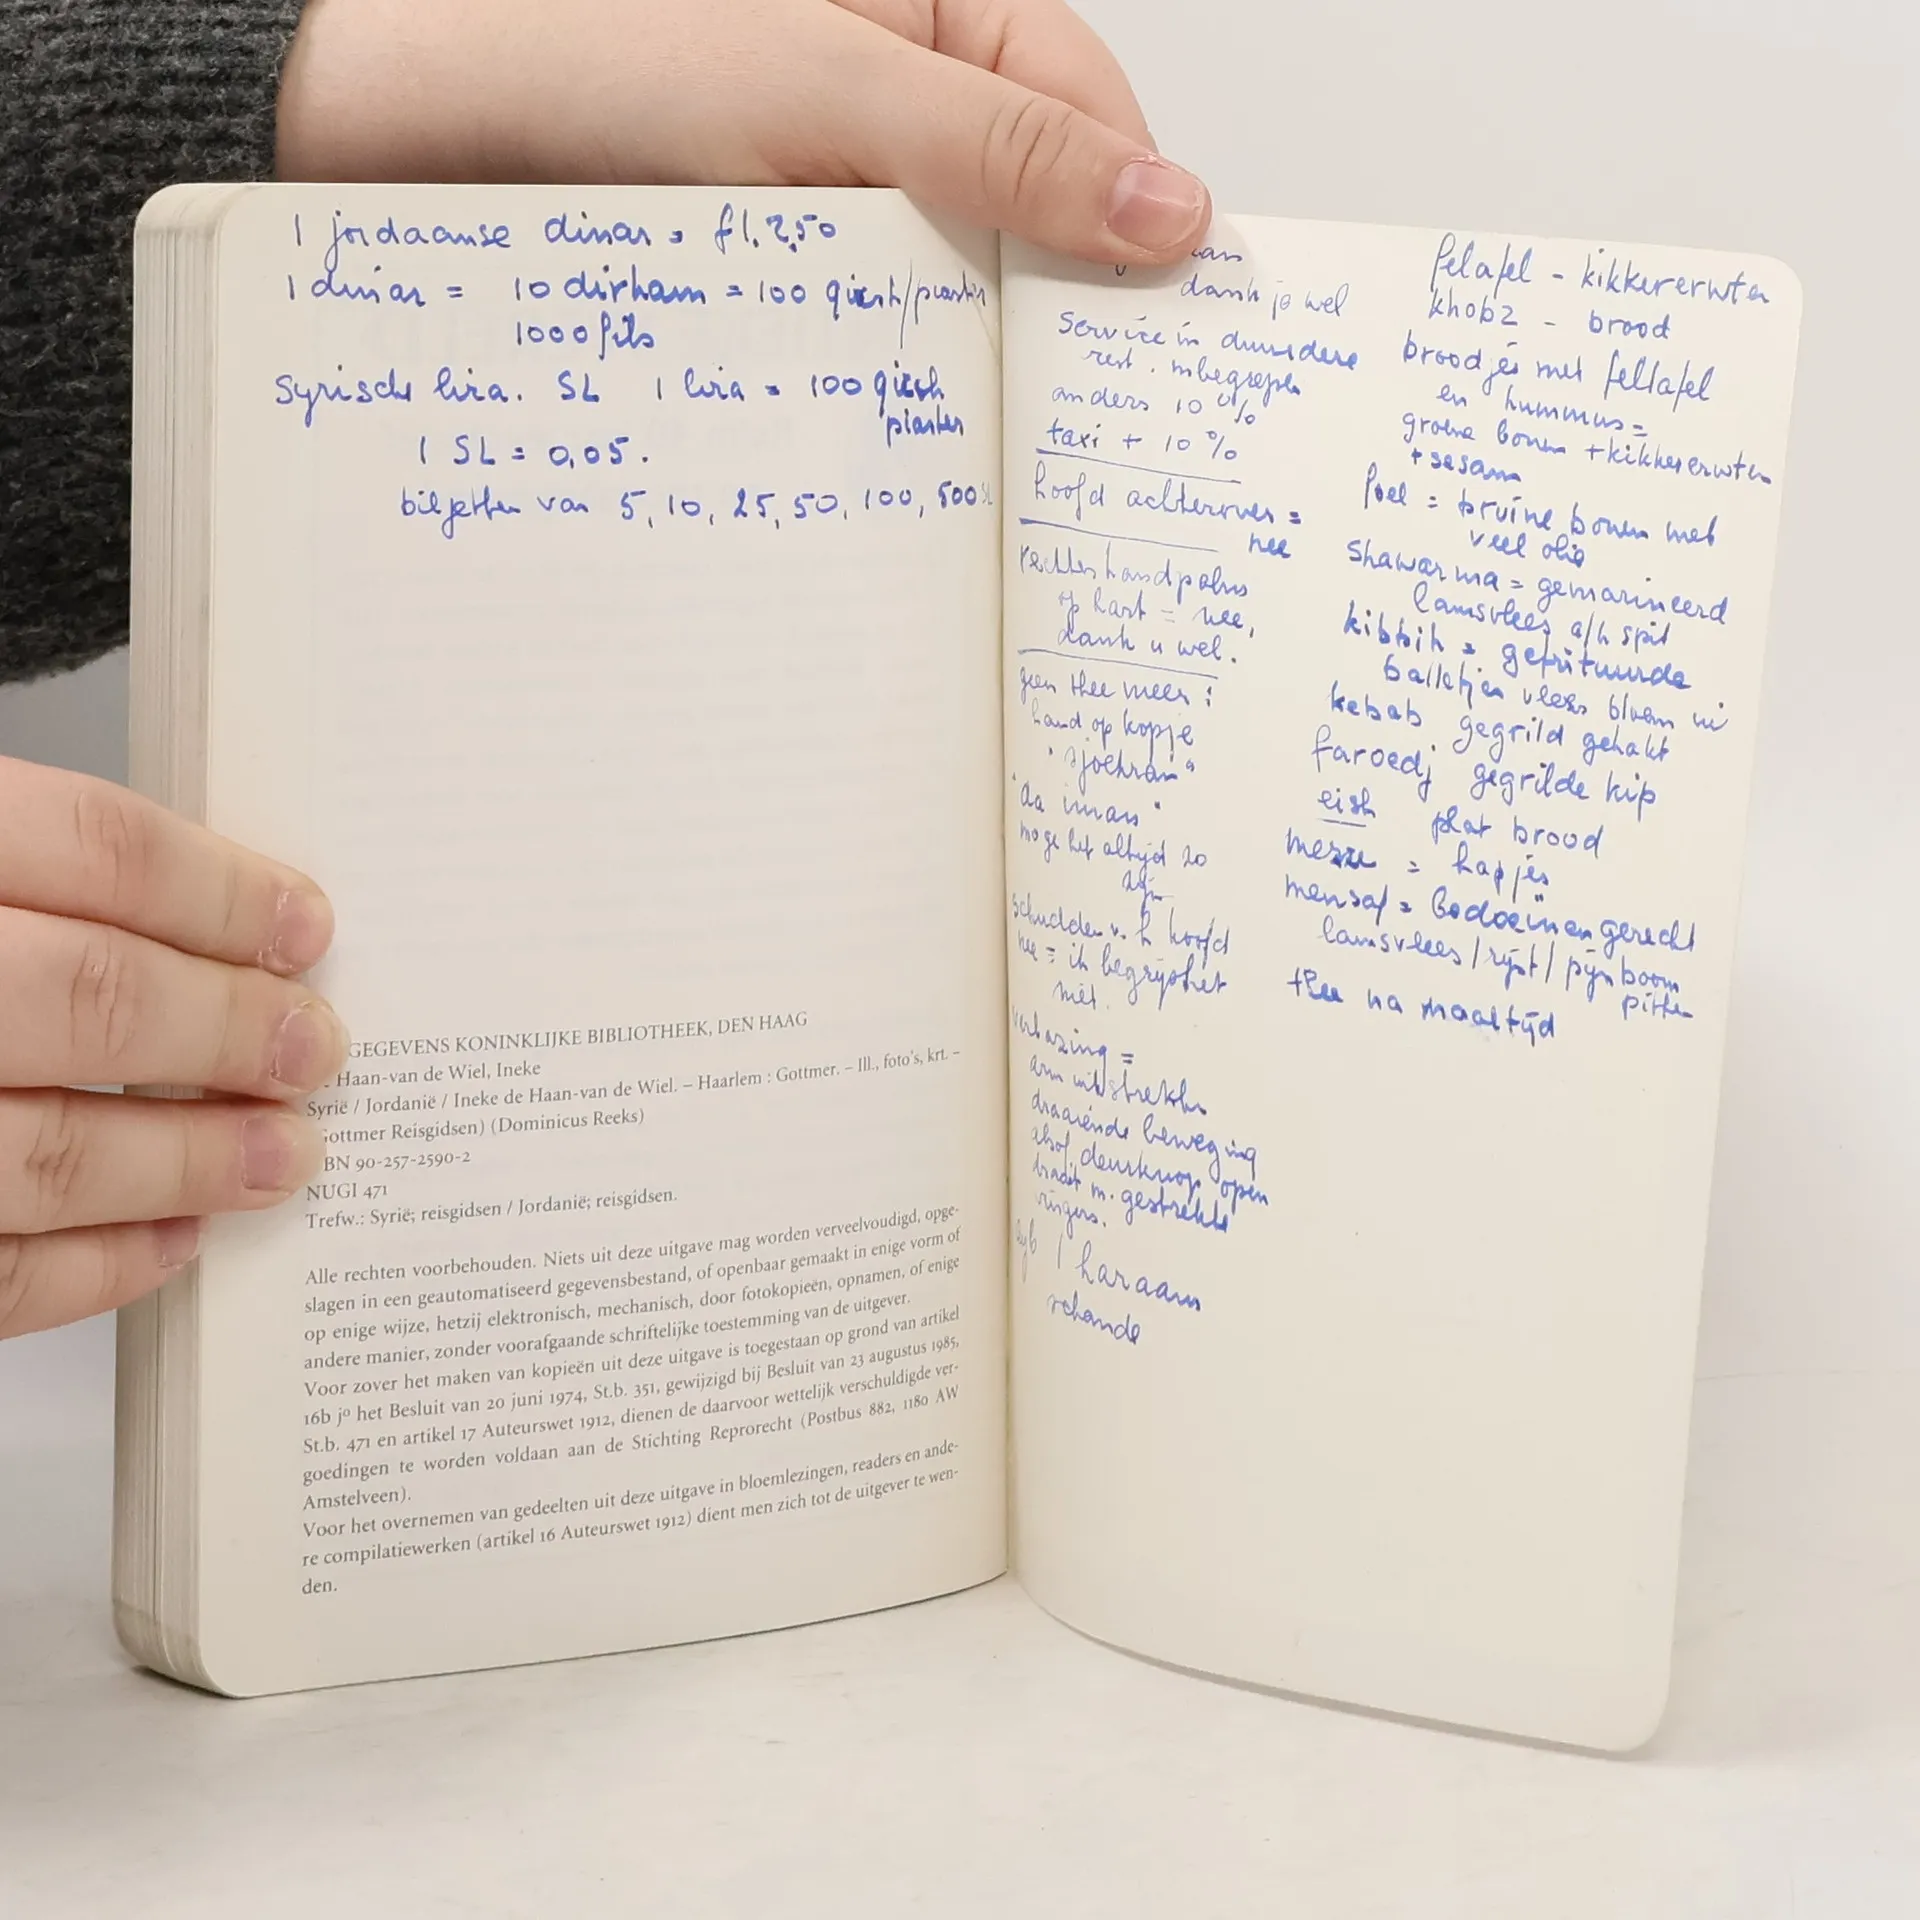 1 jordaanse dinar = fl. 2,50
1 dinar = 10 dirham = 100 qirsh/piaster
1000 fils
Syrische lira. SL 1 lira = 100 qirsh
piaster
1 SL = 0,05.
biljetten van 5, 10, 25, 50, 100, 500 SL
GEGEVENS KONINKLIJKE BIBLIOTHEEK, DEN HAAG
Haan-van de Wiel, Ineke
Syrië / Jordanië / Ineke de Haan-van de Wiel. – Haarlem : Gottmer. – Ill., foto's, krt. –
Gottmer Reisgidsen) (Dominicus Reeks)
BN 90-257-2590-2
NUGI 471
Trefw.: Syrië; reisgidsen / Jordanië; reisgidsen.
Alle rechten voorbehouden. Niets uit deze uitgave mag worden verveelvoudigd, opge-
slagen in een geautomatiseerd gegevensbestand, of openbaar gemaakt in enige vorm of
op enige wijze, hetzij elektronisch, mechanisch, door fotokopieën, opnamen, of enige
andere manier, zonder voorafgaande schriftelijke toestemming van de uitgever.
Voor zover het maken van kopieën uit deze uitgave is toegestaan op grond van artikel
16b jº het Besluit van 20 juni 1974, St.b. 351, gewijzigd bij Besluit van 23 augustus 1985,
St.b. 471 en artikel 17 Auteurswet 1912, dienen de daarvoor wettelijk verschuldigde ver-
goedingen te worden voldaan aan de Stichting Reprorecht (Postbus 882, 1180 AW
Amstelveen).
Voor het overnemen van gedeelten uit deze uitgave in bloemlezingen, readers en ande-
re compilatiewerken (artikel 16 Auteurswet 1912) dient men zich tot de uitgever te wen-
den.
dank je wel
Service in duurdere
rest. inbegrepen
anders 10%
taxi + 10%
hoofd achterover =
nee
rechterhandpalm
op hart = nee,
dank u wel.
geen thee meer :
hand op kopje
"sjoekran"
"da iman"
moge het altijd zo
zijn
schudden v. h. hoofd
nee = ik begrijp het
niet.
verbazing =
arm uitstrekken
draaiende beweging
alsof deurknop open
draait m. gestrekte
vingers.
haraam
schande
felafel - kikkererwten
khobz - brood
broodjes met fellafel
en hummus =
groene bonen + kikkererwten
+ sesam
foel = bruine bonen met
veel olie
shawarma = gemarineerd
lamsvlees a/h spit
kibbih = gefrituurde
balletjes vlees bloem ui
kebab gegrild gehakt
faroedj gegrilde kip
eish plat brood
mezze = hapjes
mensaf = bedoeïnengerecht
lamsvlees / rijst / pijnboom
pitten
thee na maaltijd